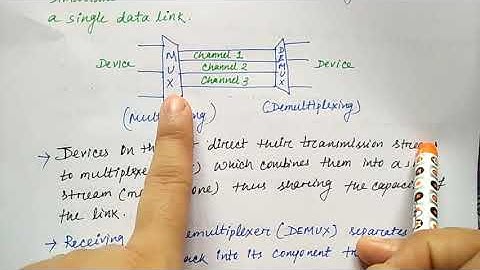 a single data link.
Device
MUX
Channel 1
Channel 2
Channel 3
DEMUX
Device
(Mul ing)
(Demultiplexing)
→ Devices on th direct their transmission stre
to multiplexe ) which combines them into a s
stream (m one) thus sharing the capacity of
the link.
→ Receiving emultiplexer (DEMUX) separates
ack into its component t